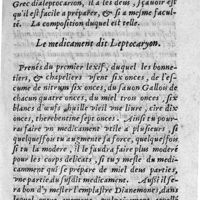 Grec dialeptocarion, il a les deux, sçauoir est
qu'il est facile a preparer, & si a mesme facul-
té. La composition duquel est telle.
Le medicament dit Leptocaryon.
Prenés du premier lexif, duquel les bonne-
tiers, & chapeliers vsent six onces, de l'es-
cume de nitrum six onces, du sauon Gallou de
chacun quatre onces, du miel trois onces, six
blancs d'œufs, d'huile vieil vne liure, cire dix
onces, therebentine sept onces. Ainsi tu pour-
ras faire vn medicament vtile a plusieurs, si
quelquesfois tu augmente sa force, quelquesfois
si tu la modere, il le faudra faire plus moderé
pour les corps delicats, si tu y mesle du medi-
cament qui se prepare de miel deux parties,
vne partie du susdit medicament. Aussi il se-
ra bon d'y mesler l'emplastre Dianemone, dans